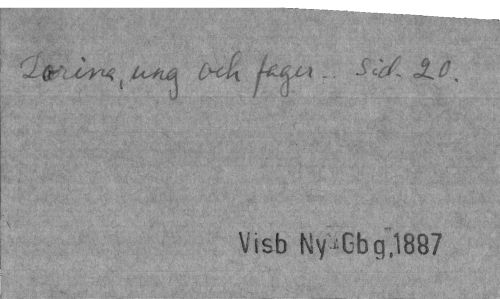 Dorina, ung och fager.. Sid. 20.
Visb Ny Gbg, 1887